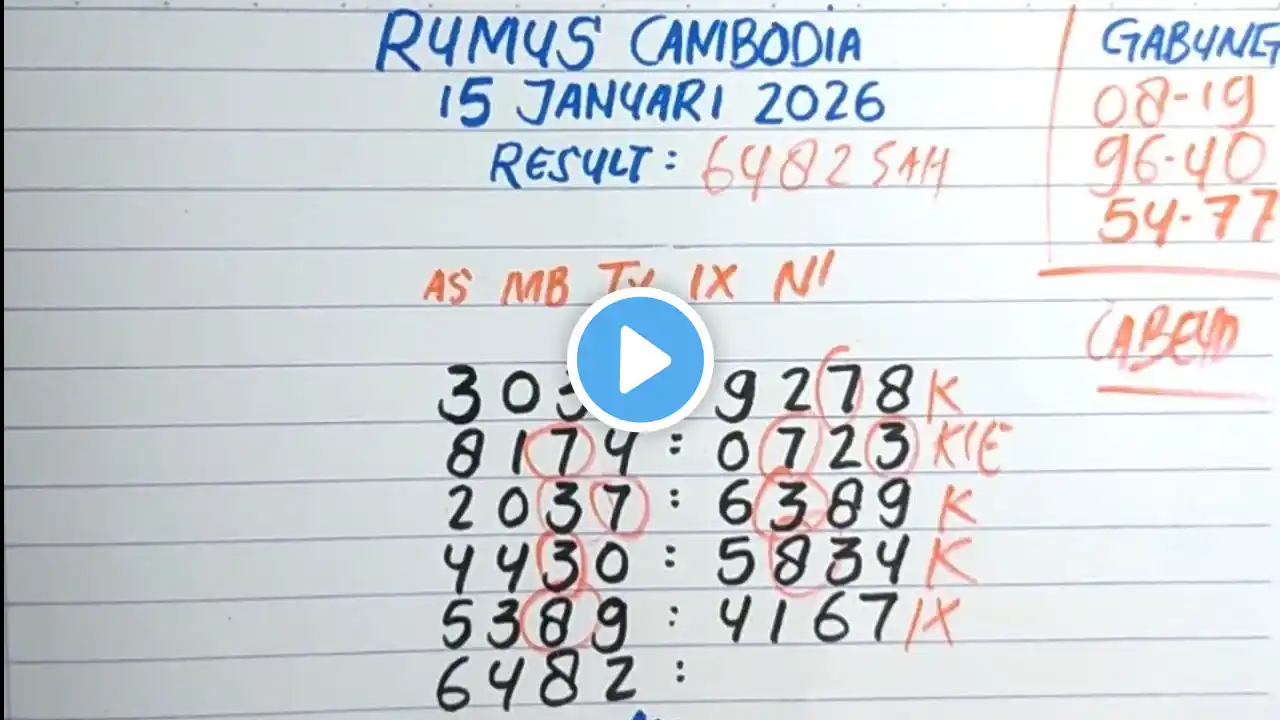 RUMUS CAMBODIA
15 JANUARI 2026
RESULT: 6482 SAH
GABUNG
08-19
96-40
54-77
AS MB TU IX NI
303 9278 K
8174 : 0723 K
2037 : 6389 K
4430 : 5834 K
5389 : 4167 IX
6482 :